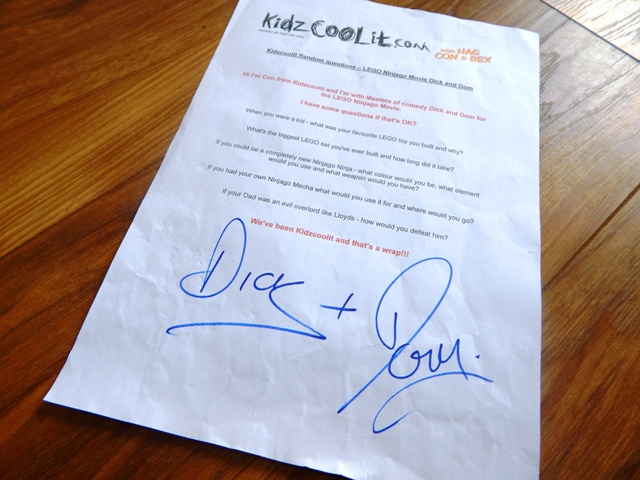 Kidz COOLit.com
with HAG
CON & BEX
Kidzcoolit Random questions – LEGO Ninjago Movie Dick and Dom
Hi I'm Con from Kidzcoolit and I'm with Masters of comedy Dick and Dom for
the LEGO Ninjago Movie.
I have some questions if that's OK?
When you were a kid - what was your favourite LEGO toy you built and why?
What's the biggest LEGO set you've ever built and how long did it take?
If you could be a completely new Ninjago Ninja - what colour would you be, what element
would you use and what weapon would you have?
If you had your own Ninjago Mecha what would you use it for and where would you go?
If your Dad was an evil overlord like Lloyds - how would you defeat him?
We've been Kidzcoolit and that's a wrap!!!
Dick + Dom.